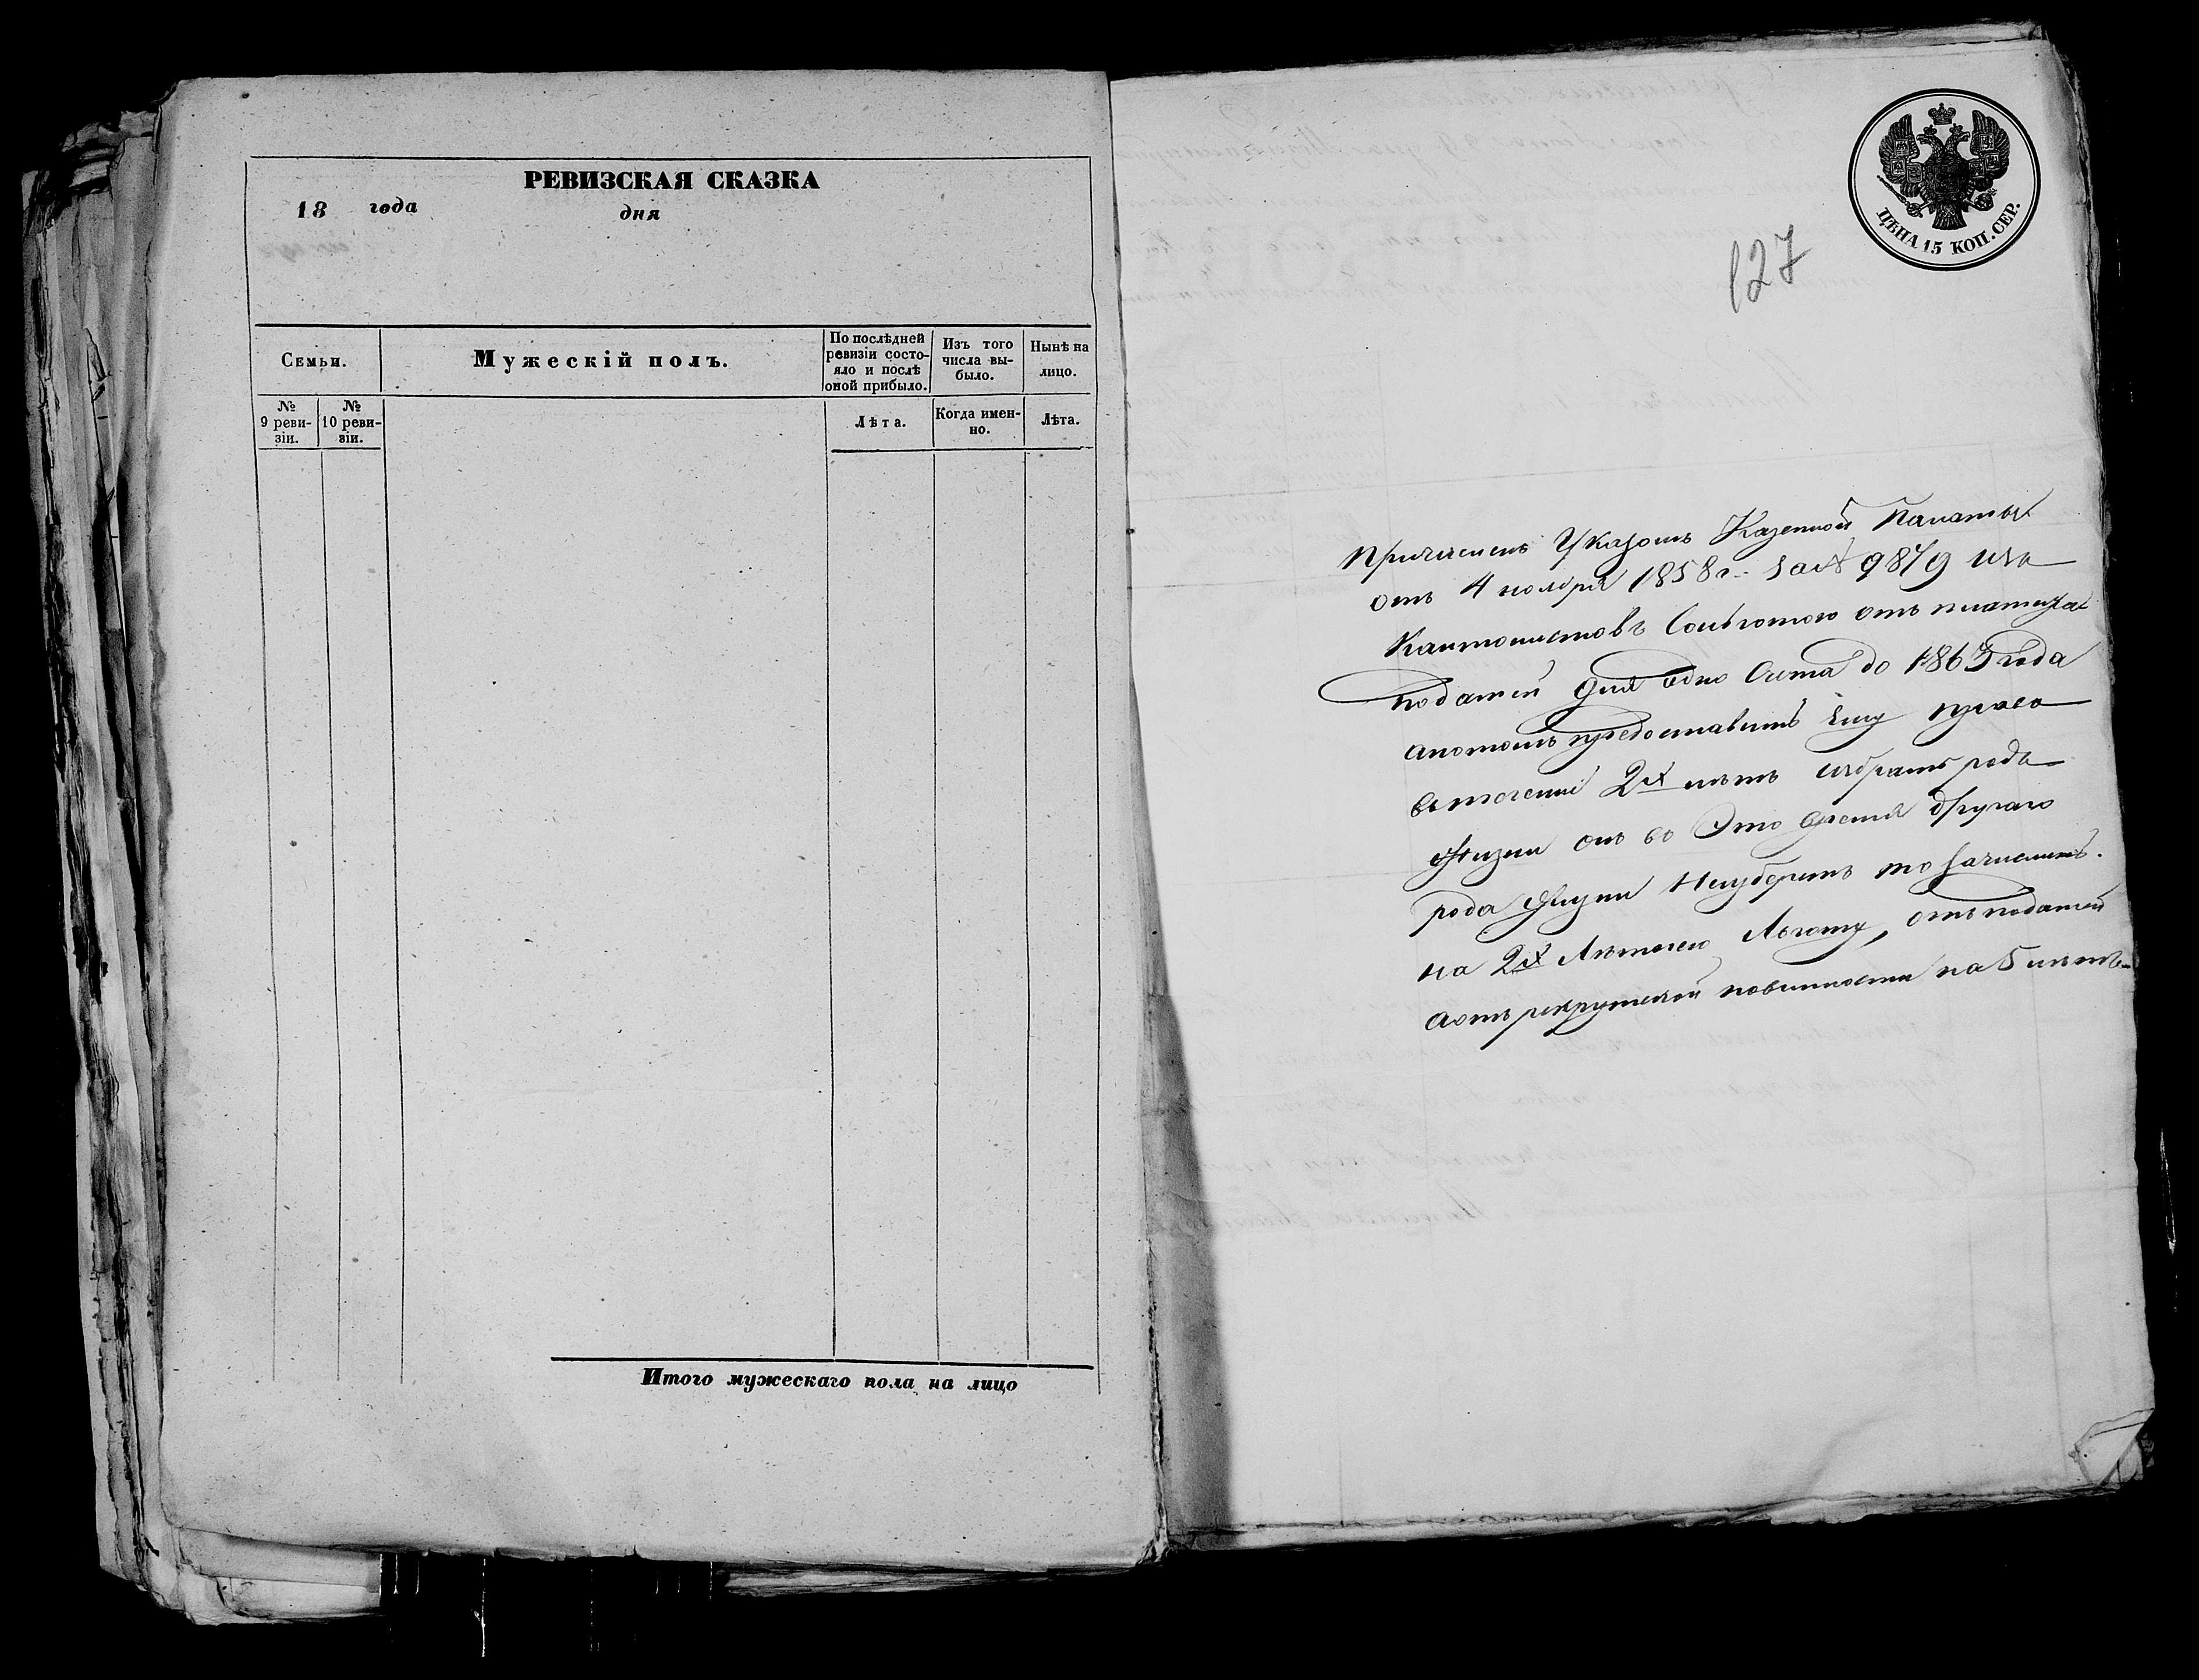 РЕВИЗСКАЯ СКАЗКА
18 года дня
Семьи.
Мужескій полъ.
По послѣдней ревизіи состо-
яло и послѣ
оной прибыло.
Изъ того
числа вы-
было.
Нынѣ на
лицо.
№
9 реви-
зіи.
№
10 реви-
зіи.
Лѣта.
Когда имен-
но.
Лѣта.
Итого мужескаго пола на лицо
ЦѢНА 15 КОП. СЕР.
127
Причисленъ Указомъ Казенной Палаты
отъ 4 ноября 1858 г. за № 9879 изъ
Кантонистовъ Сольготою отъ платежа
податей для одно Счета до 1863 года
апотомъ предоставить ему право
втечении 2х лѣтъ избрать родъ
жизни онъ во Это время другаго
рода жизни Неизберетъ то зачислить.
на 2х Лѣтнею Льготу, отъ податей
аотъ рекрутской повинности на 5 лѣтъ